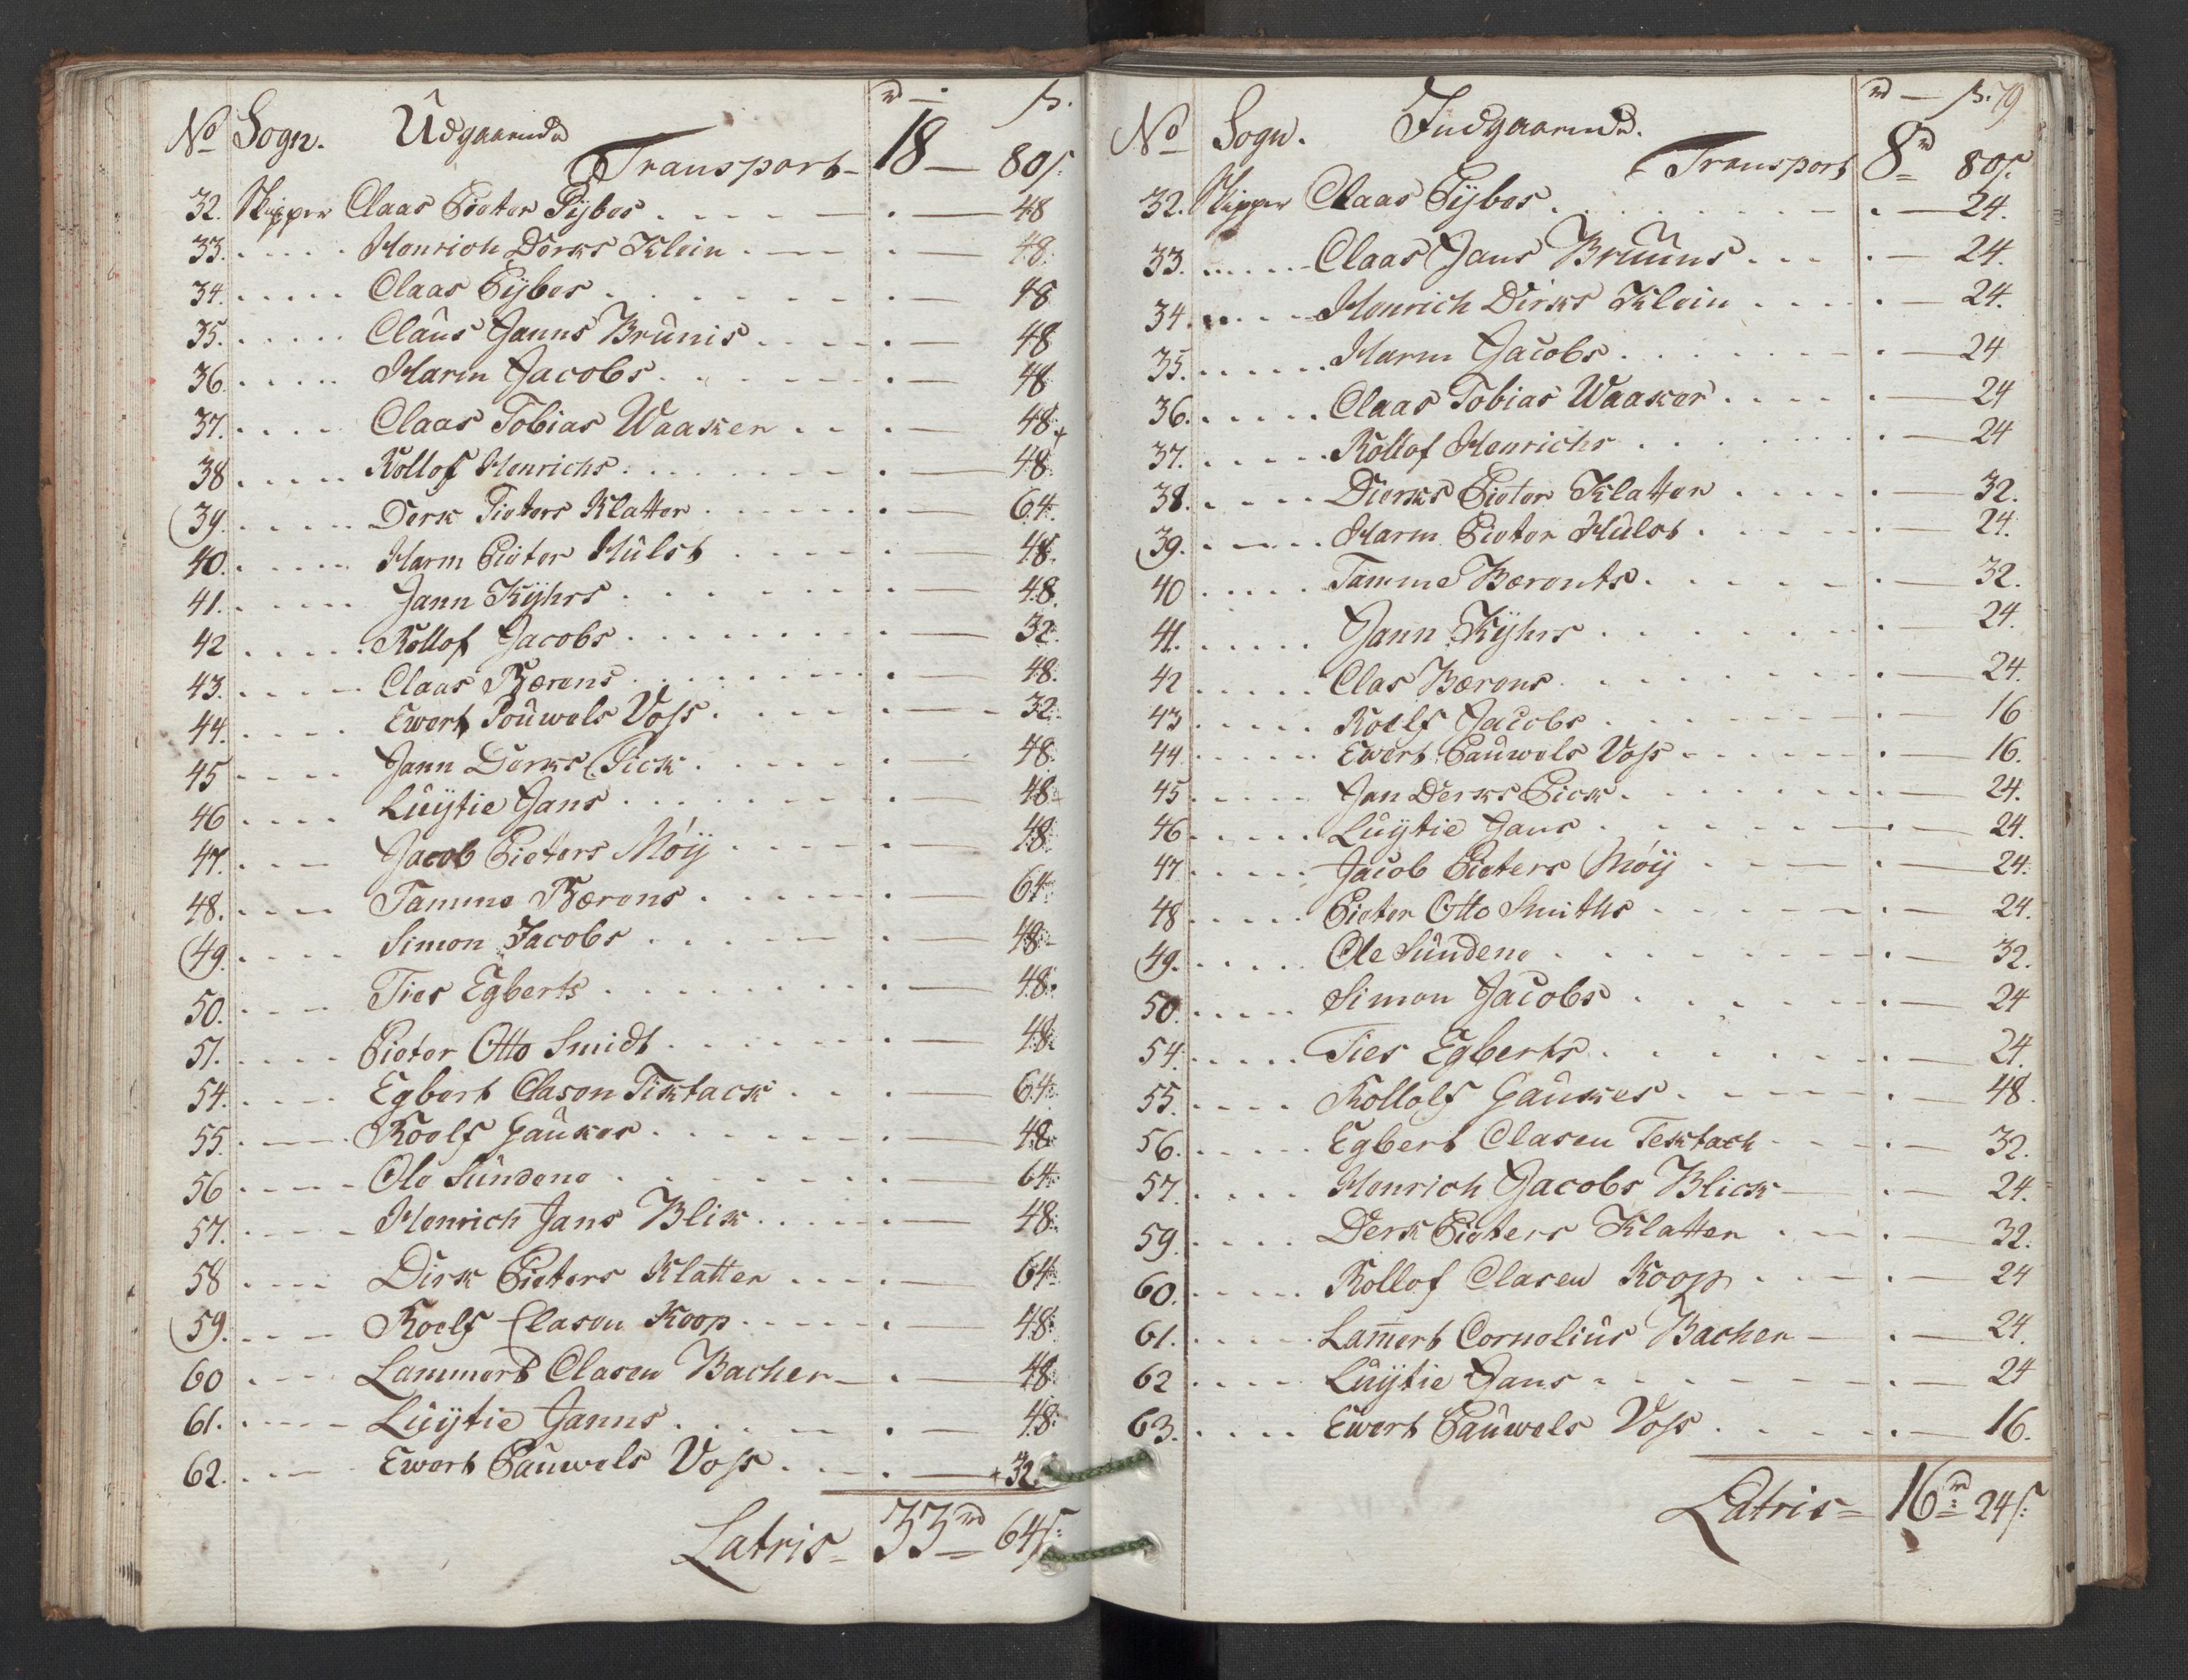 No Sogn. Udgaaende rd — ß.
Transport — 18 — 80ß.
32. Skipper Claas Pieter Pijbes . — 48
33. Henrich Dorks Klein . — 48.
34. Claas Pijbes . — 48
35. Claus Janns Brunis . — 48
36. Harm Jacobs . — 48
37. Claas Tobias Waaker . — 48.
38 Rollof Henrichs . — 48.
39. Derk Pieters Klatter . — 64.
40. Harm Pieter Hulst . — 48.
41. Jann Kijhrs . — 48.
42 Rollof Jacobs . — 32.
43. Claas Bærens . — 48.
44. Ewert Pouwels Voss . — 32.
45 Jann Derks Pick . 48.
46 Luijtie Jans . — 48
47. Jacob Pieters Móij . — 48.
48. Tamme Bærens . — 64.
49. Simon Jacobs . — 48
50. Ties Egberts . — 48.
51. Pieter Otto Smidt . — 48.
54. Egbert Clasen Tiktack . — 64.
55. Roelf Gaukes . — 48.
56 Ole Sundene . — 64.
57. Henrich Jans Blik . — 48.
58 Dirk Pieters Klatter . — 64.
59. Roelf Clasen Koop . — 48.
60 Lammert Clasen Backer . — 48
61. Luijtie Janns . — 48.
62. Ewert Pauwels Voss . — 32.
Latris — 33 rd 64ß.
No Sogn. Indgaaende. rd — ß. 79
Transport 8 rd 80ß.
32. Skipper Claas Pijbes . — 24.
33. Claas Jans Bruuns . — 24.
34. Henrich Dirks Klein . — 24.
35. Harm Jacobs . — 24
36. Claas Tobias Waaker . — 24
37. Rollof Henrichs . — 24
38. Dierks Pieter Klatter . — 32.
39. Harm Pieter Hulst . — 24.
40 Tamme Bærents . — 32.
41. Jann Kijhrs . 24.
42 Clas Bærens . — 24.
43 Roelf Jacobs . — 16
44 Ewert Pauwels Voss . — 16.
45 Jan Derks Pick . — 24.
46 Luijtie Jans . — 24.
47 Jacob Pieters Móij . — 24.
48 Pieter Otto Smiths . — 24.
49. Ole Sundene . — 32.
50. Simon Jacobs . — 24
54. Ties Egberts . — 24.
55. Rollolf Gaukes . — 48.
56. Egbert Clasen Tektack . — 32.
57. Henrich Jacobs Blick . — 24.
59. Derk Pieters Klatter . — 32.
60. Rollof Clasen Koop . — 24
61. Lamert Cornelius Backer . — 24.
62 Luijtie Jans . — 24
63. Ewert Pauwels Voss . — 16.
Latris = 16 rd 24ß.